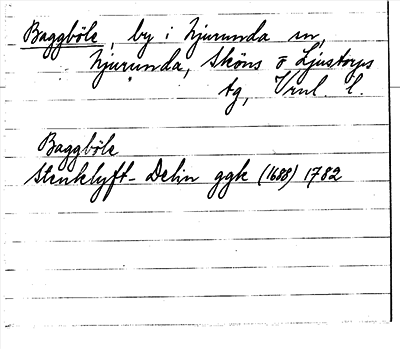 Baggböle, by i Njurunda sn,
Njurunda, Sköns o Ljustorps
tg, Vrnl. l.
Baggböle
Stenklyft- Delin ggk (1688) 1782